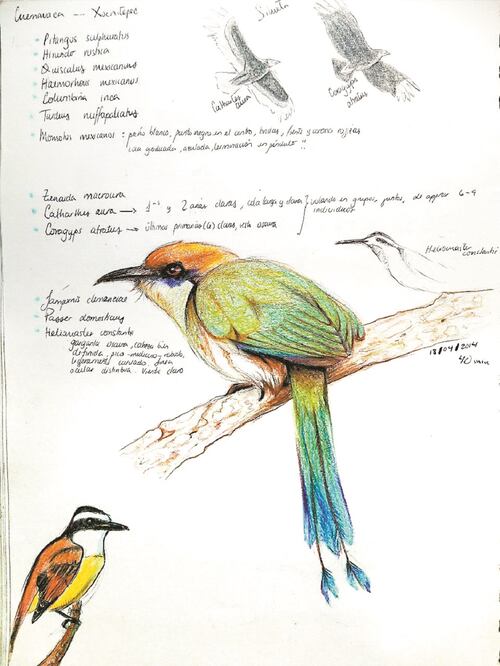 Cuernavaca -- Xochitepec
Pitangus sulphuratus
Hirundo rustica
Quiscalus mexicanus
Haemorhous mexicanus
Columbina inca
Turdus ruffopaliatus
Momotus mexicanus : pecho blanco, punto negro en el centro, frente y corona rojizas
cola graduada, azulada, terminación en péndulo !!
Cathartes aura
Coragyps atratus
Zenaida macroura
Catharthes aura → 1-s y 2 arias claras, cola larga y clara } volando en grupos, juntos, de aprox 6-9
individuos
Coragyps atratus → últimas primarias (6) claras, cola oscura
Heliomaster
constantii
dinnersias
Passer domesticus
Heliomaster constantii
garganta oscura, cabeza bien
definida, pico mediano y robusto,
ligeramente curvado, línea
ocular distintiva. Verde claro
18/04/2014